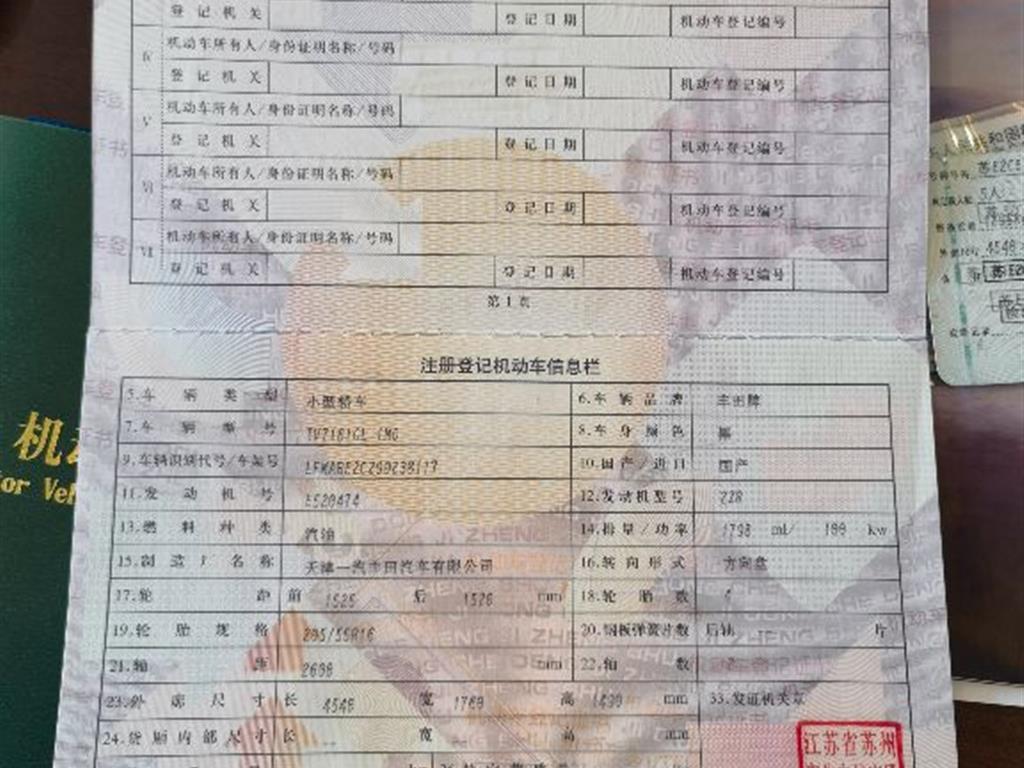 登记机关 登记日期 机动车登记编号
Ⅳ 机动车所有人/身份证明名称/号码
登记机关 登记日期 机动车登记编号
Ⅴ 机动车所有人/身份证明名称/号码
登记机关 登记日期 机动车登记编号
Ⅵ 机动车所有人/身份证明名称/号码
登记机关 登记日期 机动车登记编号
Ⅶ 机动车所有人/身份证明名称/号码
登记机关 登记日期 机动车登记编号
第1页
注册登记机动车信息栏
5.车辆类型 小型轿车 6.车辆品牌 丰田牌
7.车辆型号 8.车身颜色 黑
9.车辆识别代号/车架号 10.国产/进口 国产
11.发动机号 12.发动机型号 2ZR
13.燃料种类 汽油 14.排量/功率 1798 ml/ kw
15.制造厂名称 天津一汽丰田汽车有限公司 16.转向形式 方向盘
17.轮距 前 1525 后 1526 mm 18.轮胎数 4
19.轮胎规格 205/55R16 20.钢板弹簧片数 后轴 片
21.轴距 2600 mm 22.轴数 2
23.外廓尺寸 长 4548 宽 1760 高 1490 mm 33.发证机关章
24.货厢内部尺寸 长 宽 高 mm
江苏省苏州
机动
or Veh
5人